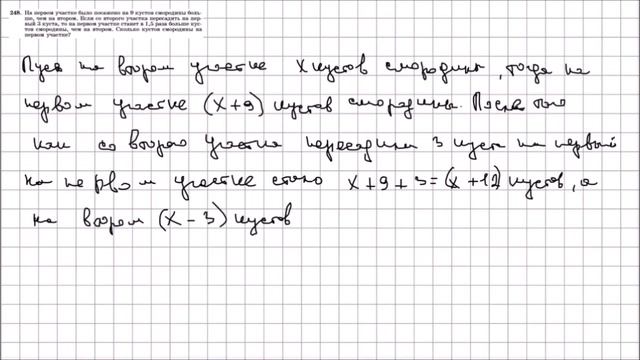 248. На первом участке было посажено на 9 кустов смородины боль-
ше, чем на втором. Если со второго участка пересадить на пер-
вый 3 куста, то на первом участке станет в 1,5 раза больше кус-
тов смородины, чем на втором. Сколько кустов смородины на
первом участке?
Пусть на втором участке x кустов смородины, тогда на
первом участке (x+9) кустов смородины. После того
как со второго участка пересадили 3 куста на первый
на первом участке стало x+9+3=(x+12) кустов, а
на втором (x-3) кустов